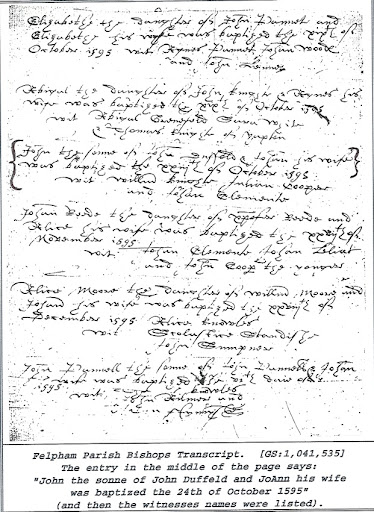 Elizabethe the daughter of John Pannet and
Elizabethe his wife was baptized the xixth of
October 1595 wit Agnes Pannet Johan Wook
and John
Abigal the daughter of John Knight & Agnes his
wife was baptized the xixth of October 1595
wit Abigal Sara White
& Thomas Knight of Yapton
John the sonne of John Duffeld & Johan his wife
was baptized the of October 1595
wit willm knight Julian Cooper
and Johan Clemente
Johan Bende the daughter of Bende and
Alice his wife was baptized the of
November 1595
wit Johan Clemente Johan
and John Coop the yonger
Alice Moore the daughter of willm Moore and
Johan his wife was baptized the of
December 1595 Alice knowles
wit Scolastice Standishe
John Sumpner
John Pannell the sonne of John Pannell & Johan
his wife was baptized the vith daie of
1595 wit knowles
John and
Felpham Parish Bishops Transcript. [GS:1,041,535]
The entry in the middle of the page says:
"John the sonne of John Duffeld and JoAnn his wife
was baptized the 24th of October 1595"
(and then the witnesses names were listed).